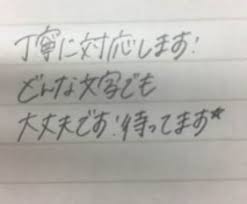 丁寧に対応します!
どんな文字でも
大丈夫です!待ってます☆